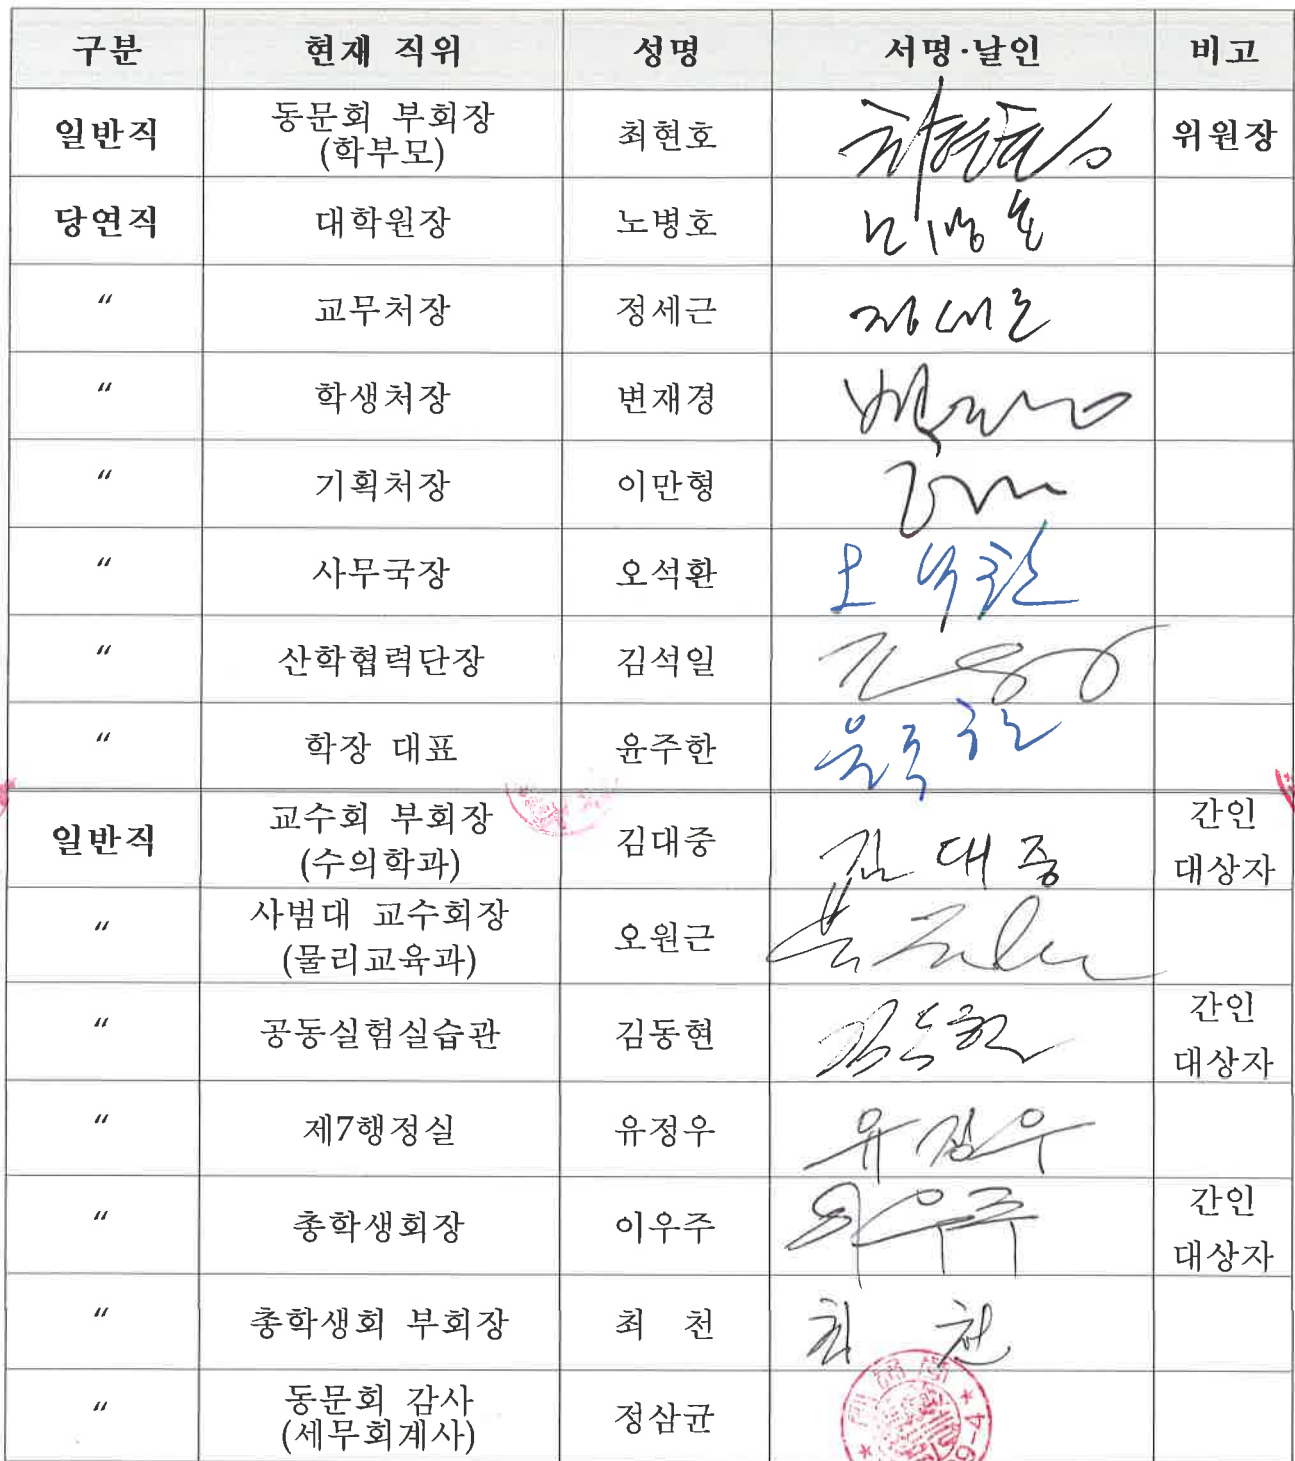 구분 현재 직위 성명 서명·날인 비고
일반직 동문회 부회장 최현호 최현호 위원장
(학부모)
당연직 대학원장 노병호 노병호
〃 교무처장 정세근 정세근
〃 학생처장 변재경
〃 기획처장 이만형
〃 사무국장 오석환 오석환
〃 산학협력단장 김석일
〃 학장 대표 윤주한 윤주한
일반직 교수회 부회장 김대중 김대중 간인
(수의학과) 대상자
〃 사범대 교수회장 오원근
(물리교육과)
〃 공동실험실습관 김동현 김동현 간인
대상자
〃 제7행정실 유정우 유정우
〃 총학생회장 이우주 이우주 간인
대상자
〃 총학생회 부회장 최 천 최 천
〃 동문회 감사 정삼균
(세무회계사)